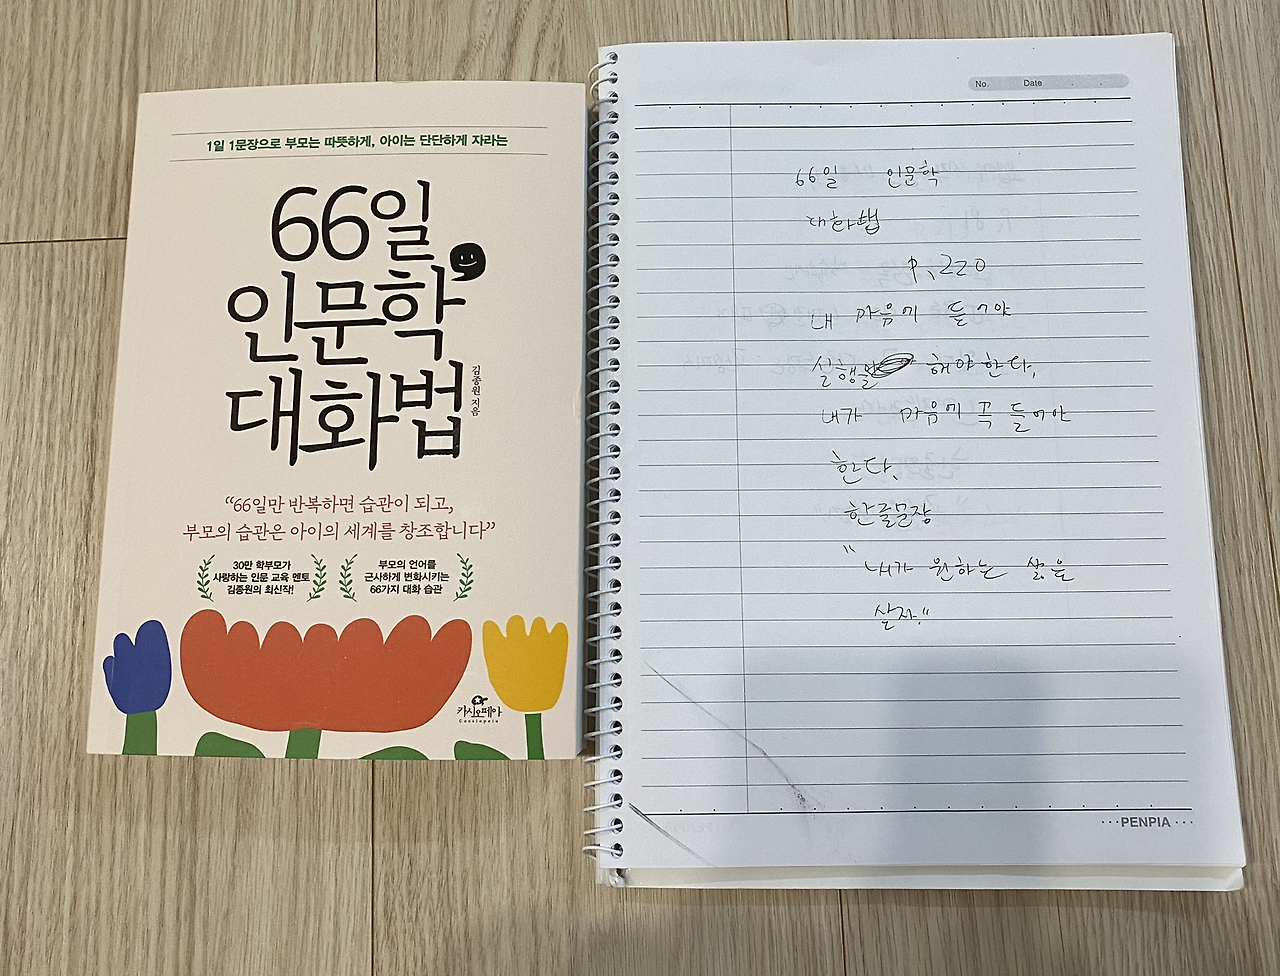 1일 1문장으로 부모는 따뜻하게, 아이는 단단하게 자라는
66일
인문학
대화법
김종원 지음
“66일만 반복하면 습관이 되고,
부모의 습관은 아이의 세계를 창조합니다”
30만 학부모가
사랑하는 인문 교육 멘토
김종원의 최신작!
부모의 언어를
근사하게 변화시키는
66가지 대화 습관
카시오페아
Cassiopeia
No. Date
66일 인문학
대화법
P. 220
내 마음에 들어야
실행을 해야한다.
내가 마음에 꼭 들어야
한다.
한글문장
"내가 원하는 삶을
살자."
PENPIA